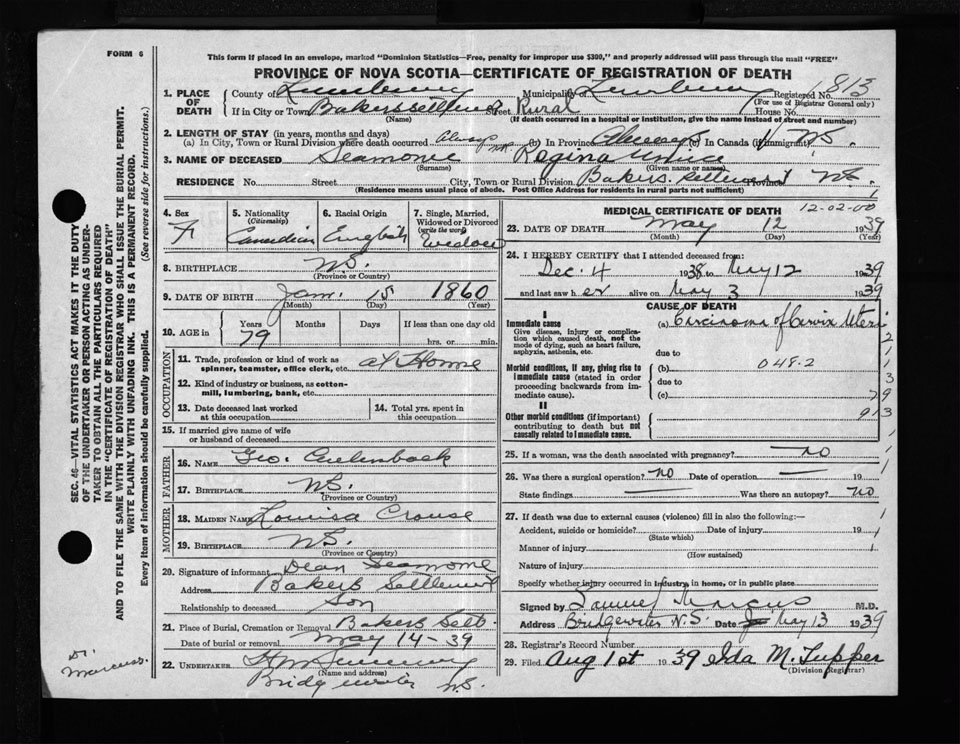 FORM 6
This form if placed in an envelope, marked "Dominion Statistics—Free, penalty for improper use $300," and properly addressed will pass through the mail "FREE"
PROVINCE OF NOVA SCOTIA—CERTIFICATE OF REGISTRATION OF DEATH
1. PLACE OF DEATH County of Lunenburg Municipality of Lunenburg Registered No. 813
(For use of Registrar General only)
If in City or Town Bakers settlement Street Rural House No.
(Name) (If death occurred in a hospital or institution, give the name instead of street and number)
2. LENGTH OF STAY (in years, months and days)
(a) In City, Town or Rural Division where death occurred Always (b) In Province Always (c) In Canada (if immigrant) N.S.
3. NAME OF DECEASED Seamone Regina
(Surname) (Given name or names)
RESIDENCE No. Street City, Town or Rural Division Bakers Settlement Province N.S.
(Residence means usual place of abode. Post Office Address for residents in rural parts not sufficient)
4. Sex F
5. Nationality (Citizenship) Canadian
6. Racial Origin English
7. Single, Married, Widowed or Divorced (write the word) Widow
8. BIRTHPLACE N.S.
(Province or Country)
9. DATE OF BIRTH Jan. 15 1860
(Month) (Day) (Year)
10. AGE in Years 79 Months Days If less than one day hrs. or min.
OCCUPATION
11. Trade, profession or kind of work as spinner, teamster, office clerk, etc. at Home
12. Kind of industry or business, as cotton-mill, lumbering, bank, etc.
13. Date deceased last worked at this occupation
14. Total yrs. spent in this occupation
15. If married give name of wife or husband of deceased
FATHER
16. NAME Geo.
17. BIRTHPLACE N.S.
(Province or Country)
MOTHER
18. MAIDEN NAME Louisa Crouse
19. BIRTHPLACE N.S.
(Province or Country)
20. Signature of informant Dean Seamone
Address Bakers Settlement
Relationship to deceased Son
21. Place of Burial, Cremation or Removal Bakers Sett.
Date of burial or removal May 14 - 39
22. UNDERTAKER
(Name and address)
Bridgewater N.S.
MEDICAL CERTIFICATE OF DEATH 12-02-00 1
23. DATE OF DEATH May 12 1939
(Month) (Day) (Year)
24. I HEREBY CERTIFY that I attended deceased from:
Dec. 4 1938 to May 12 1939
and last saw her alive on May 3 1939
CAUSE OF DEATH
I
Immediate cause
Give disease, injury or complication which caused death, not the mode of dying, such as heart failure, asphyxia, asthenia, etc.
(a) Carcinoma of Cervix Uteri
due to
Morbid conditions, if any, giving rise to immediate cause (stated in order proceeding backwards from immediate cause).
(b) 048.2
due to
(c)
II
Other morbid conditions (if important) contributing to death but not causally related to immediate cause.
2
1
1
3
79
913
25. If a woman, was the death associated with pregnancy? no
26. Was there a surgical operation? no Date of operation 19
State findings Was there an autopsy? no
27. If death was due to external causes (violence) fill in also the following:—
Accident, suicide or homicide? Date of injury 19
(State which)
Manner of injury
(How sustained)
Nature of injury
Specify whether injury occurred in industry, in home, or in public place
Signed by Samuel Marcus M.D.
Address Bridgewater N.S. Date May 13 1939
28. Registrar's Record Number
29. Filed Aug 1st 1939 M. Tupper
(Division Registrar)
SEC. 46—VITAL STATISTICS ACT MAKES IT THE DUTY OF THE UNDERTAKER OR PERSON ACTING AS UNDERTAKER TO OBTAIN ALL THE PARTICULARS REQUIRED IN THE "CERTIFICATE OF REGISTRATION OF DEATH" AND TO FILE THE SAME WITH THE DIVISION REGISTRAR WHO SHALL ISSUE THE BURIAL PERMIT.
WRITE PLAINLY WITH UNFADING INK. THIS IS A PERMANENT RECORD.
Every item of information should be carefully supplied. (See reverse side for instructions.)
Dr. Marcus.